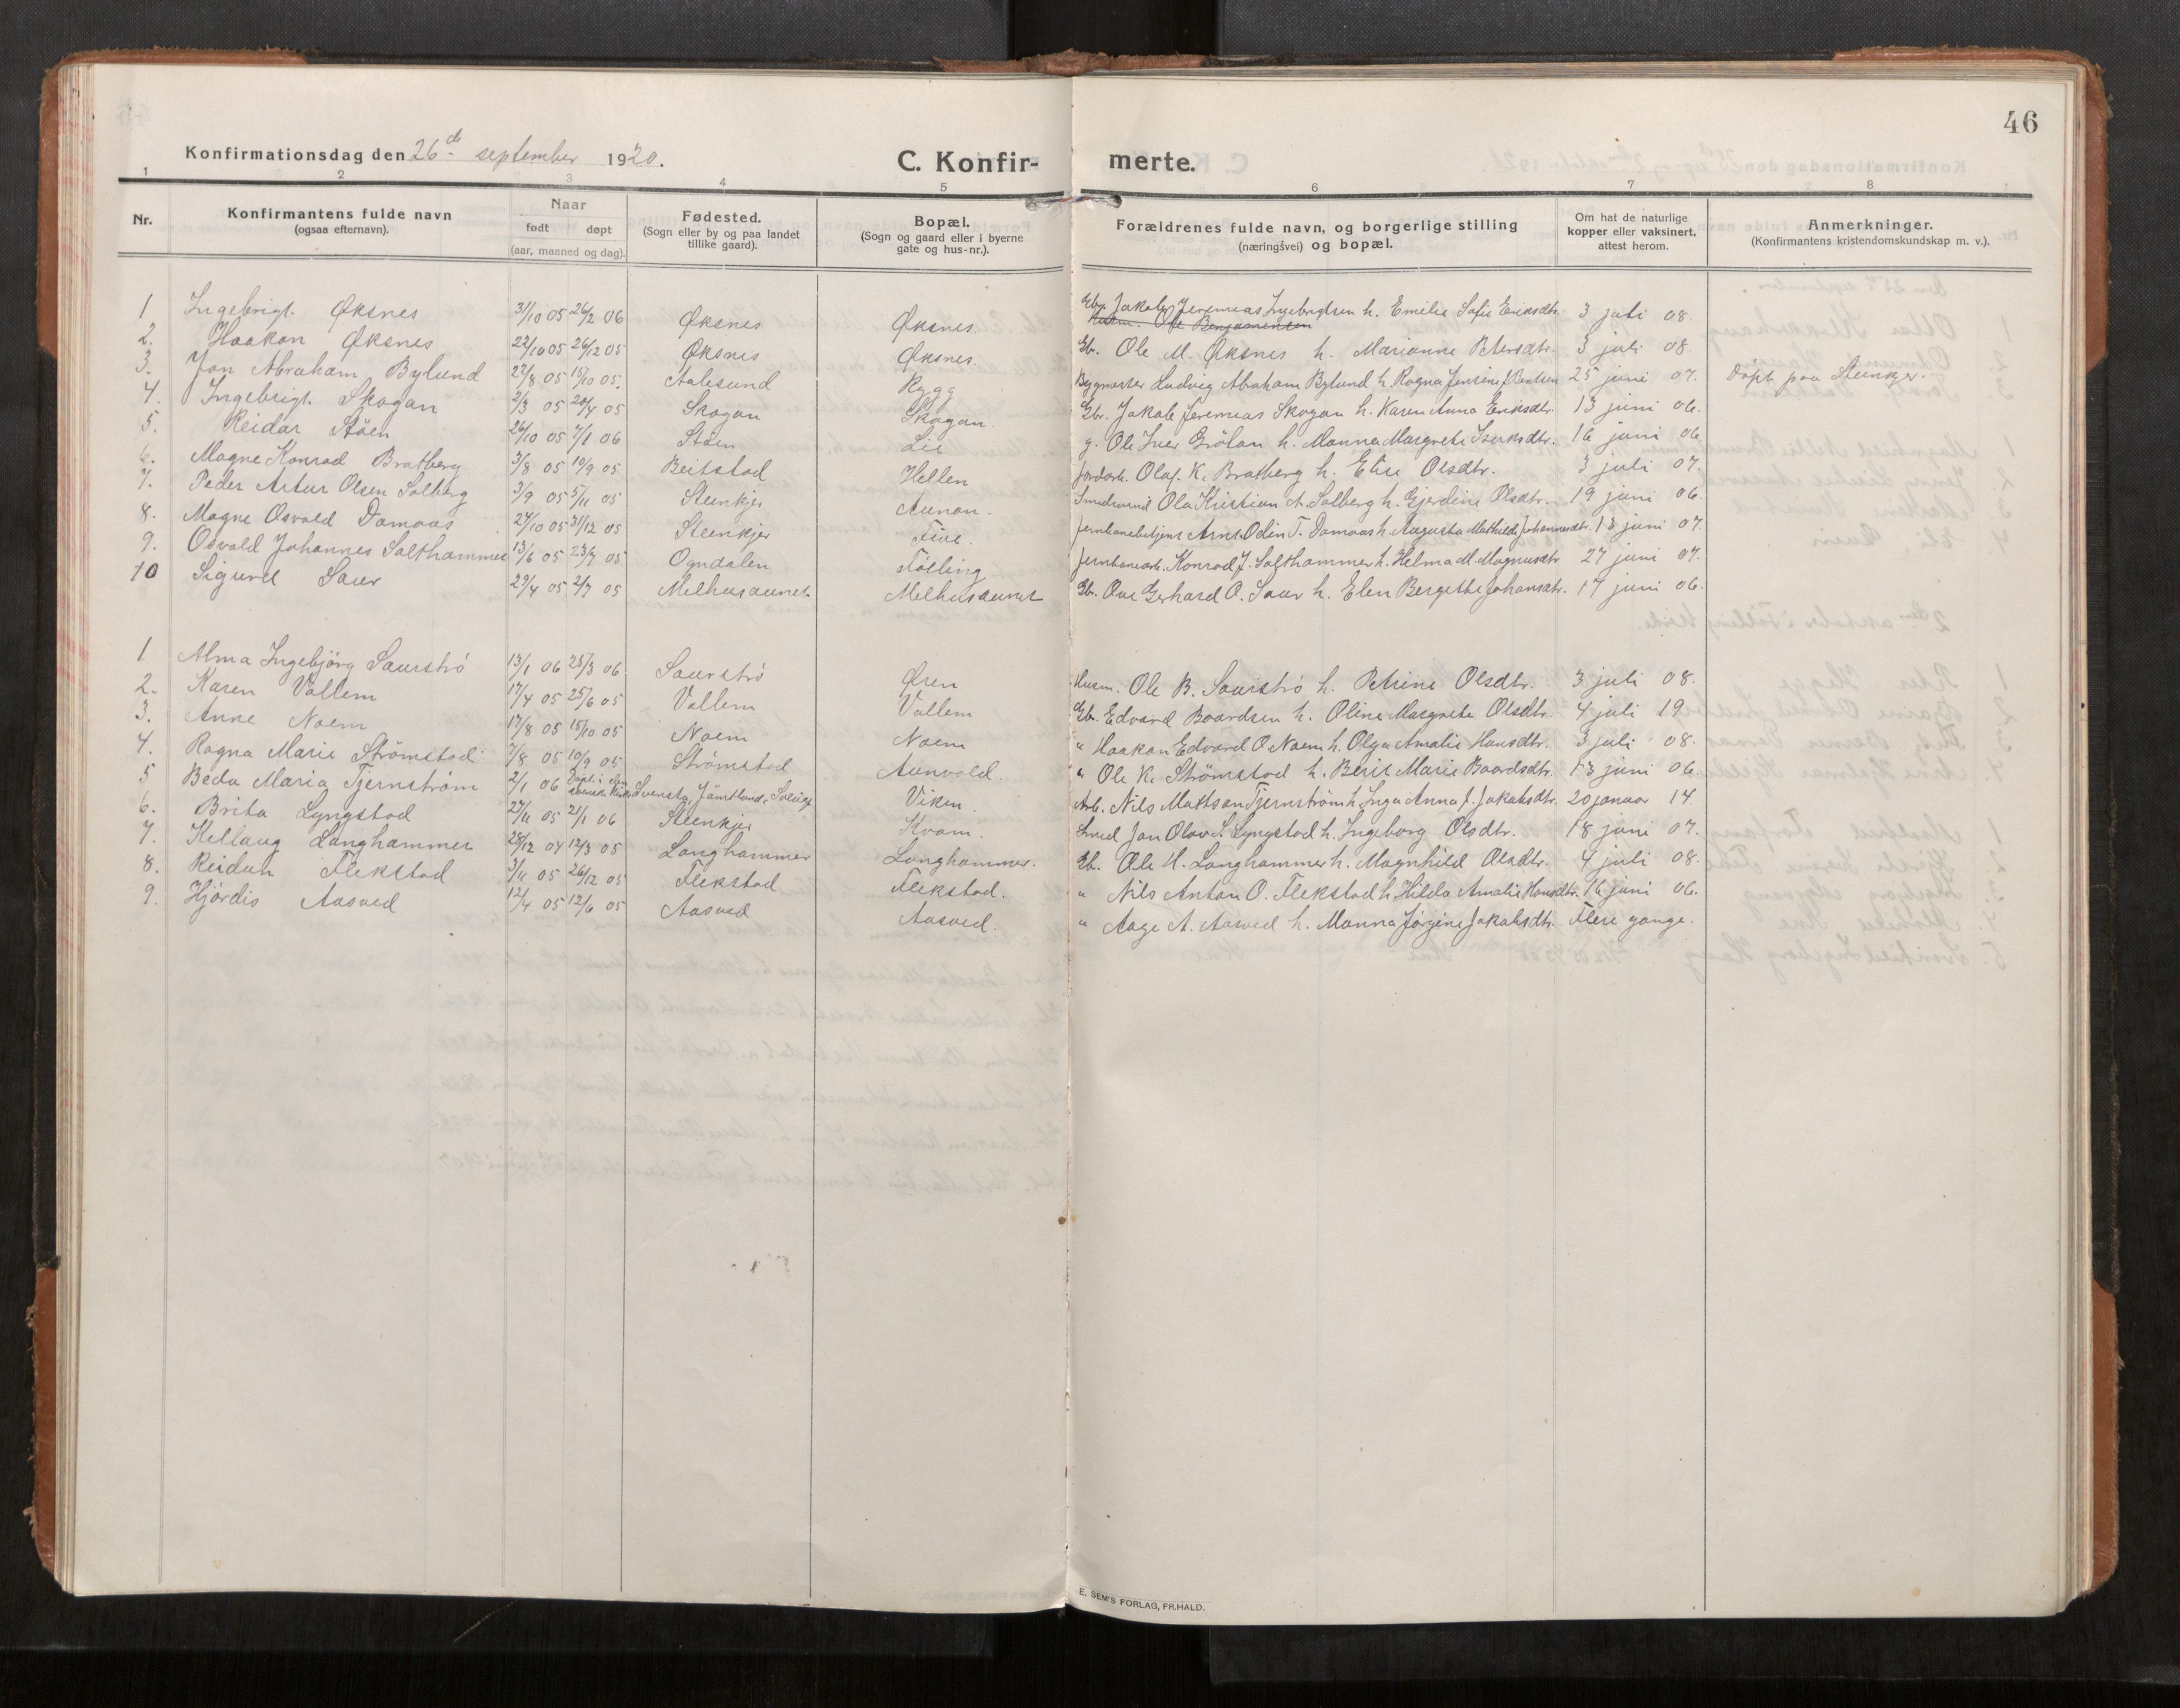 46
Konfirmationsdag den 26de september 1920.
C. Konfirmerte.
1 2 3 4 5 6 7 8
Nr. | Konfirmantens fulde navn (ogsaa efternavn). | Naar født døpt (aar, maaned og dag). | Fødested. (Sogn eller by og paa landet tillike gaard). | Bopæl. (Sogn og gaard eller i byerne gate og hus-nr.). | Forældrenes fulde navn, og borgerlige stilling (næringsvei) og bopæl. | Om hat de naturlige kopper eller vaksinert, attest herom. | Anmerkninger. (Konfirmantens kristendomskundskap m. v.).
1 Ingebrigt Øksnes 31/10 05 26/2 06 Øksnes Øksnes Gbr. Jakob Jeremias Ingebrigtsen h. Emilie Sofie Eriksdtr. 3 juli 08.
Husm. Ole Benjaminsen
2. Haakon Øksnes 22/10 05 26/12 05 Øksnes Øksnes. Gb. Ole M. Øksnes h. Marianne Petersdtr. 3 juli 08.
3. Jon Abraham Bylund 22/8 05 15/10 05. Aalesund Rygg Bygmester Ludvig Abraham Bylund h. Ragna Jensine J. Bentsen 25 juni 07. Døpt paa Steenkjer.
4. Ingebrigt Skogan 2/3 05 20/4 05 Skogan Skogan. Gbr. Jakob Jeremias Skogan h. Karen Anna Eriksdtr. 13 juni 06.
5. Reidar Støen 26/10 05 7/1 06 Støen Lie g. Ole Iver Grölan h. Manna Margrete Isaksdtr. 16 juni 06
6. Magne Konrad Bratberg 3/8 05 10/9 05 Beitstad Hellen Jordarb. Olaf. K. Bratberg h. Elise Olsdtr. 3 juli 07.
7. Peder Artur Olsen Solberg 3/9 05 5/11 05 Steenkjer Aunan. Smedsvend Ola Kristian A. Solberg h. Gjerdine Olsdtr. 19 juni 06.
8. Magne Osvald Damaas 24/10 05 31/12 05 Steenkjer Five. Jernbanebetjent Arnt Odin T. Damaas h. Augusta Mathilde Johannesdtr. 13 juni 07.
9. Osvald Johannes Salthammer 13/6 05 23/7 05 Ogndalen Følling Jernbanearb. Konrad J. Salthammer h. Helma M. Magnusdtr 27 juni 07.
10 Sigurd Saur 29/4 05 2/7 05 Melhusaunet Melhusaunet Gb. Ove Gerhard O. Saur h. Elen Bergitte Johansdtr. 17 juni 06.
1 Alma Ingebjörg Saurströ 13/1 06 25/3 06 Saurströ Øren Husm. Ole B. Saurströ h. Petrine Olsdtr. 3 juli 08.
2. Karen Vallem 17/4 05 25/6 05 Vallem Vallem Gb. Edvard Baardsen h. Oline Margrete Olsdtr. 4 juli 19
3. Anne Naem 17/8 05 15/10 05 Naem Naem " Haakon Edvard O Naem h. Olga Amalie Hansdtr. 3 juli 08.
4. Ragna Marie Strömstad 7/8 05 10/9 05 Strömstad Aunvold. " Ole K. Strömstad h. Berit Marie Baardsdtr. 13 juni 06.
5 Beda Maria Tjernström 2/1 06 Døpt i den svenske kirke Svensta, Jämtland, Sverige Viken Arb. Nils Mattson Tjernström h. Inga Anna J. Jakobsdtr. 20 januar 14.
6. Brita Lyngstad 27/11 05 21/1 06 Steenkjer Kvam. Smed Jon Olav S. Lyngstad h. Ingeborg Olsdtr. 18 juni 07.
7. Kellaug Langhammer 28/12 04 12/3 05 Langhammer Langhammer. Gb. Ole M. Langhammer h. Magnhild Olsdtr. 4 juli 08.
8. Reidun Flekstad 3/11 05 26/12 05 Flekstad Flekstad. " Nils Anton O. Flekstad h. Hilda Amalie Hansdtr. 16 juni 06.
9. Hjördis Aasved 12/4 05 12/6 05 Aasved Aasved. " Aage A. Aasved h. Manna Jørgine Jakobsdtr. Flere gange.
E. SEM'S FORLAG, FR.HALD.